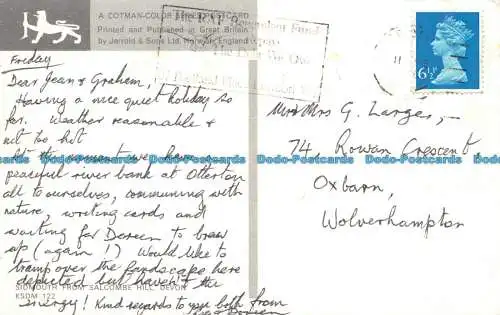 A COTMAN-COLOR SERIES POSTCARD
Printed and Published in Great Britain
by Jarrold & Sons Ltd, Norwich, England
Benevolent Fund
6½P
Friday
Dear Jean & Graham,
Having a nice quiet holiday so
far. Weather reasonable &
not too hot
At the moment we have a
peaceful river bank at Otterton
all to ourselves, communing with
nature, writing cards and
waiting for Doreen to brew
up (again!) Would like to
tramp over the landscape here
depicted but haven't the
energy! Kind regards to you both from
Doreen
SIDMOUTH FROM SALCOMBE HILL, DEVON
KSDM 122
Mr & Mrs G. Larges,
74, Rowan Crescent,
Oxbarn,
Wolverhampton
Dodo-Postcards Dodo-Postcards Dodo-Postcards Dodo-Postcards Dodo-Postcards